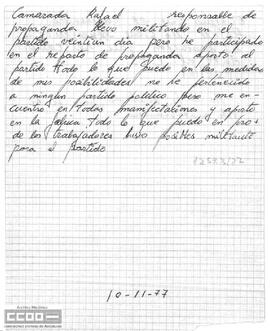 Camarada Rafael responsable de
propaganda llevo militando en el
partido veintiun dia pero he participado
en el reparto de propaganda aporto al
partido todo lo que puedo en las medidas
de mis posibilidades no he pertenecido
a ningun partido politico pero me en-
cuentro en todas manifestaciones y aporto
en la fabrica todo lo que puedo en pro
de los trabajadores posibles militante
para el partido
10-11-77
CCOO